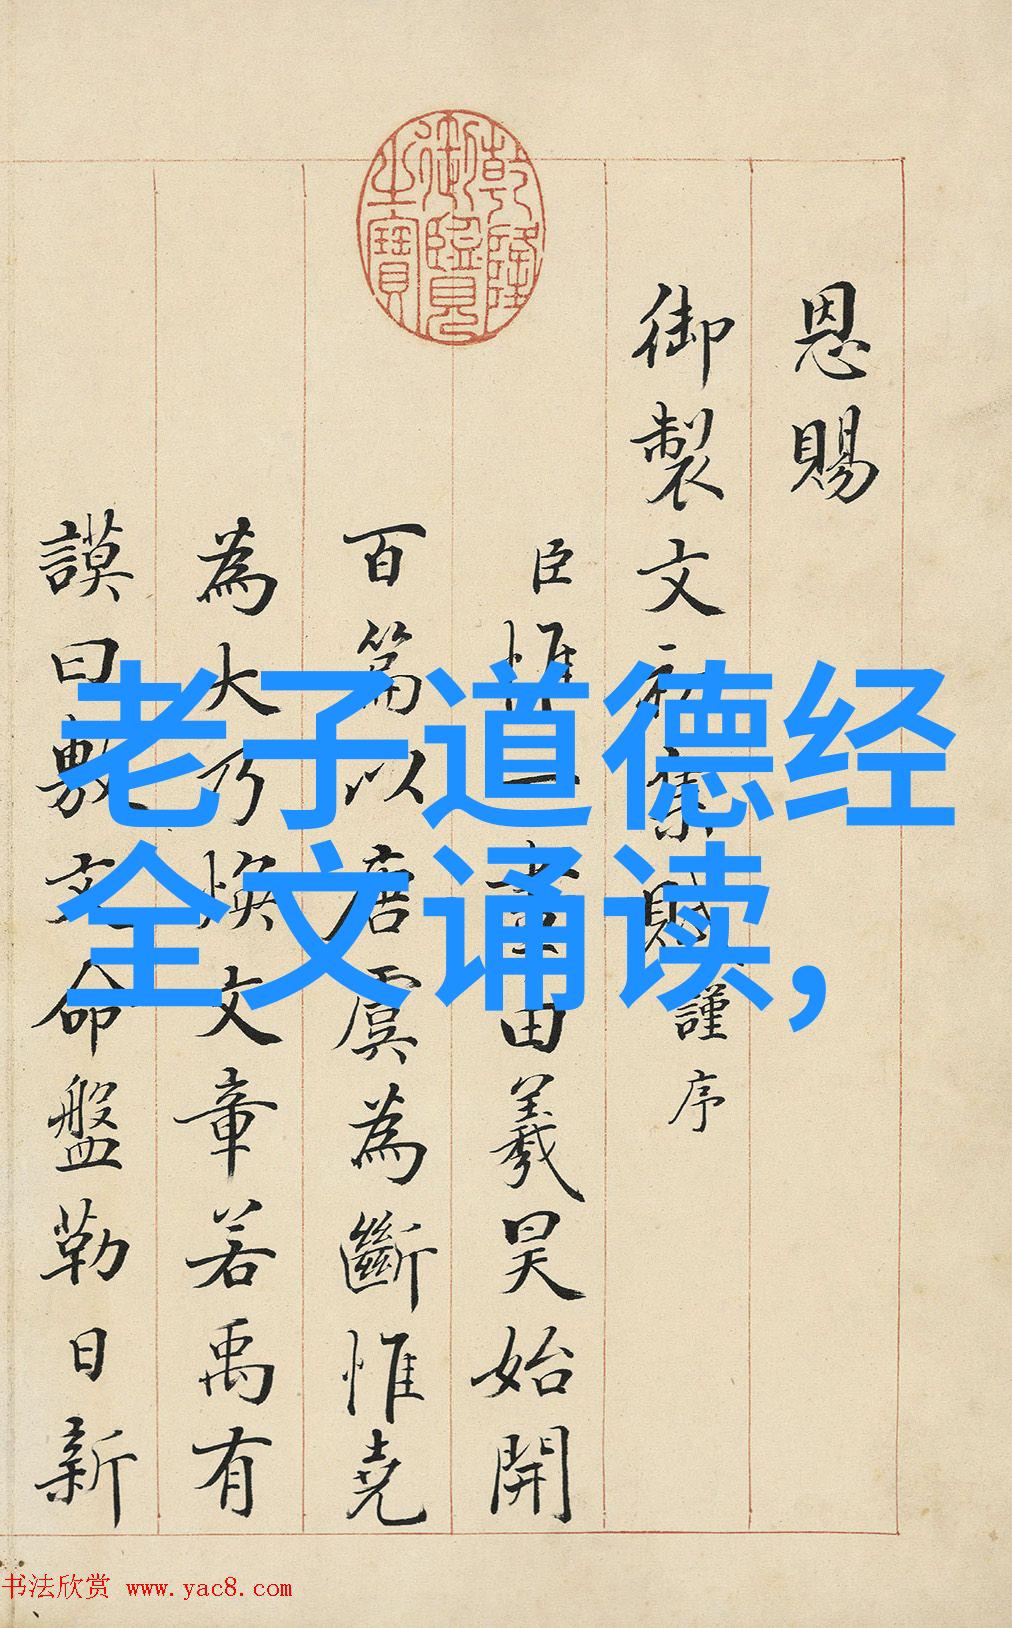 乾隆御覽之寶
恩賜
御製文初集謹序
臣惟一畫由羲昊始開
百篇以唐虞為斷惟堯
為大乃煥文章若禹有
謨曰敷文命盤勒日新
老子道德经
全文诵读,
书法欣赏 www.yac8.com